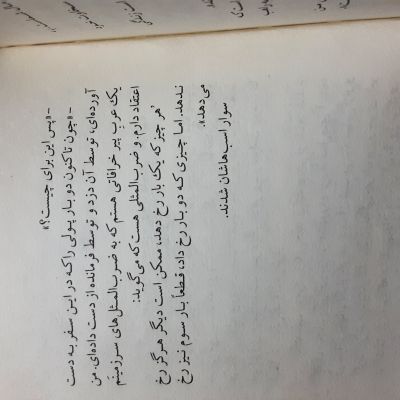 -«پس این برای چیست؟»
-«چون تاکنون دو بار پولی را که در این سفر به دست
آورده‌ای، توسط آن دزد و توسط فرمانده از دست داده‌ای. من
یک عرب پیر خرافاتی هستم که به ضرب‌المثل‌های سرزمینم
اعتقاد دارم. و ضرب‌المثلی هست که می‌گوید:
'هر چیز که یک بار رخ دهد، ممکن است دیگر هرگز رخ
ندهد. اما چیزی که دو بار رخ داد، قطعاً بار سوم نیز رخ
می‌دهد'».
سوار اسب‌هاشان شدند.